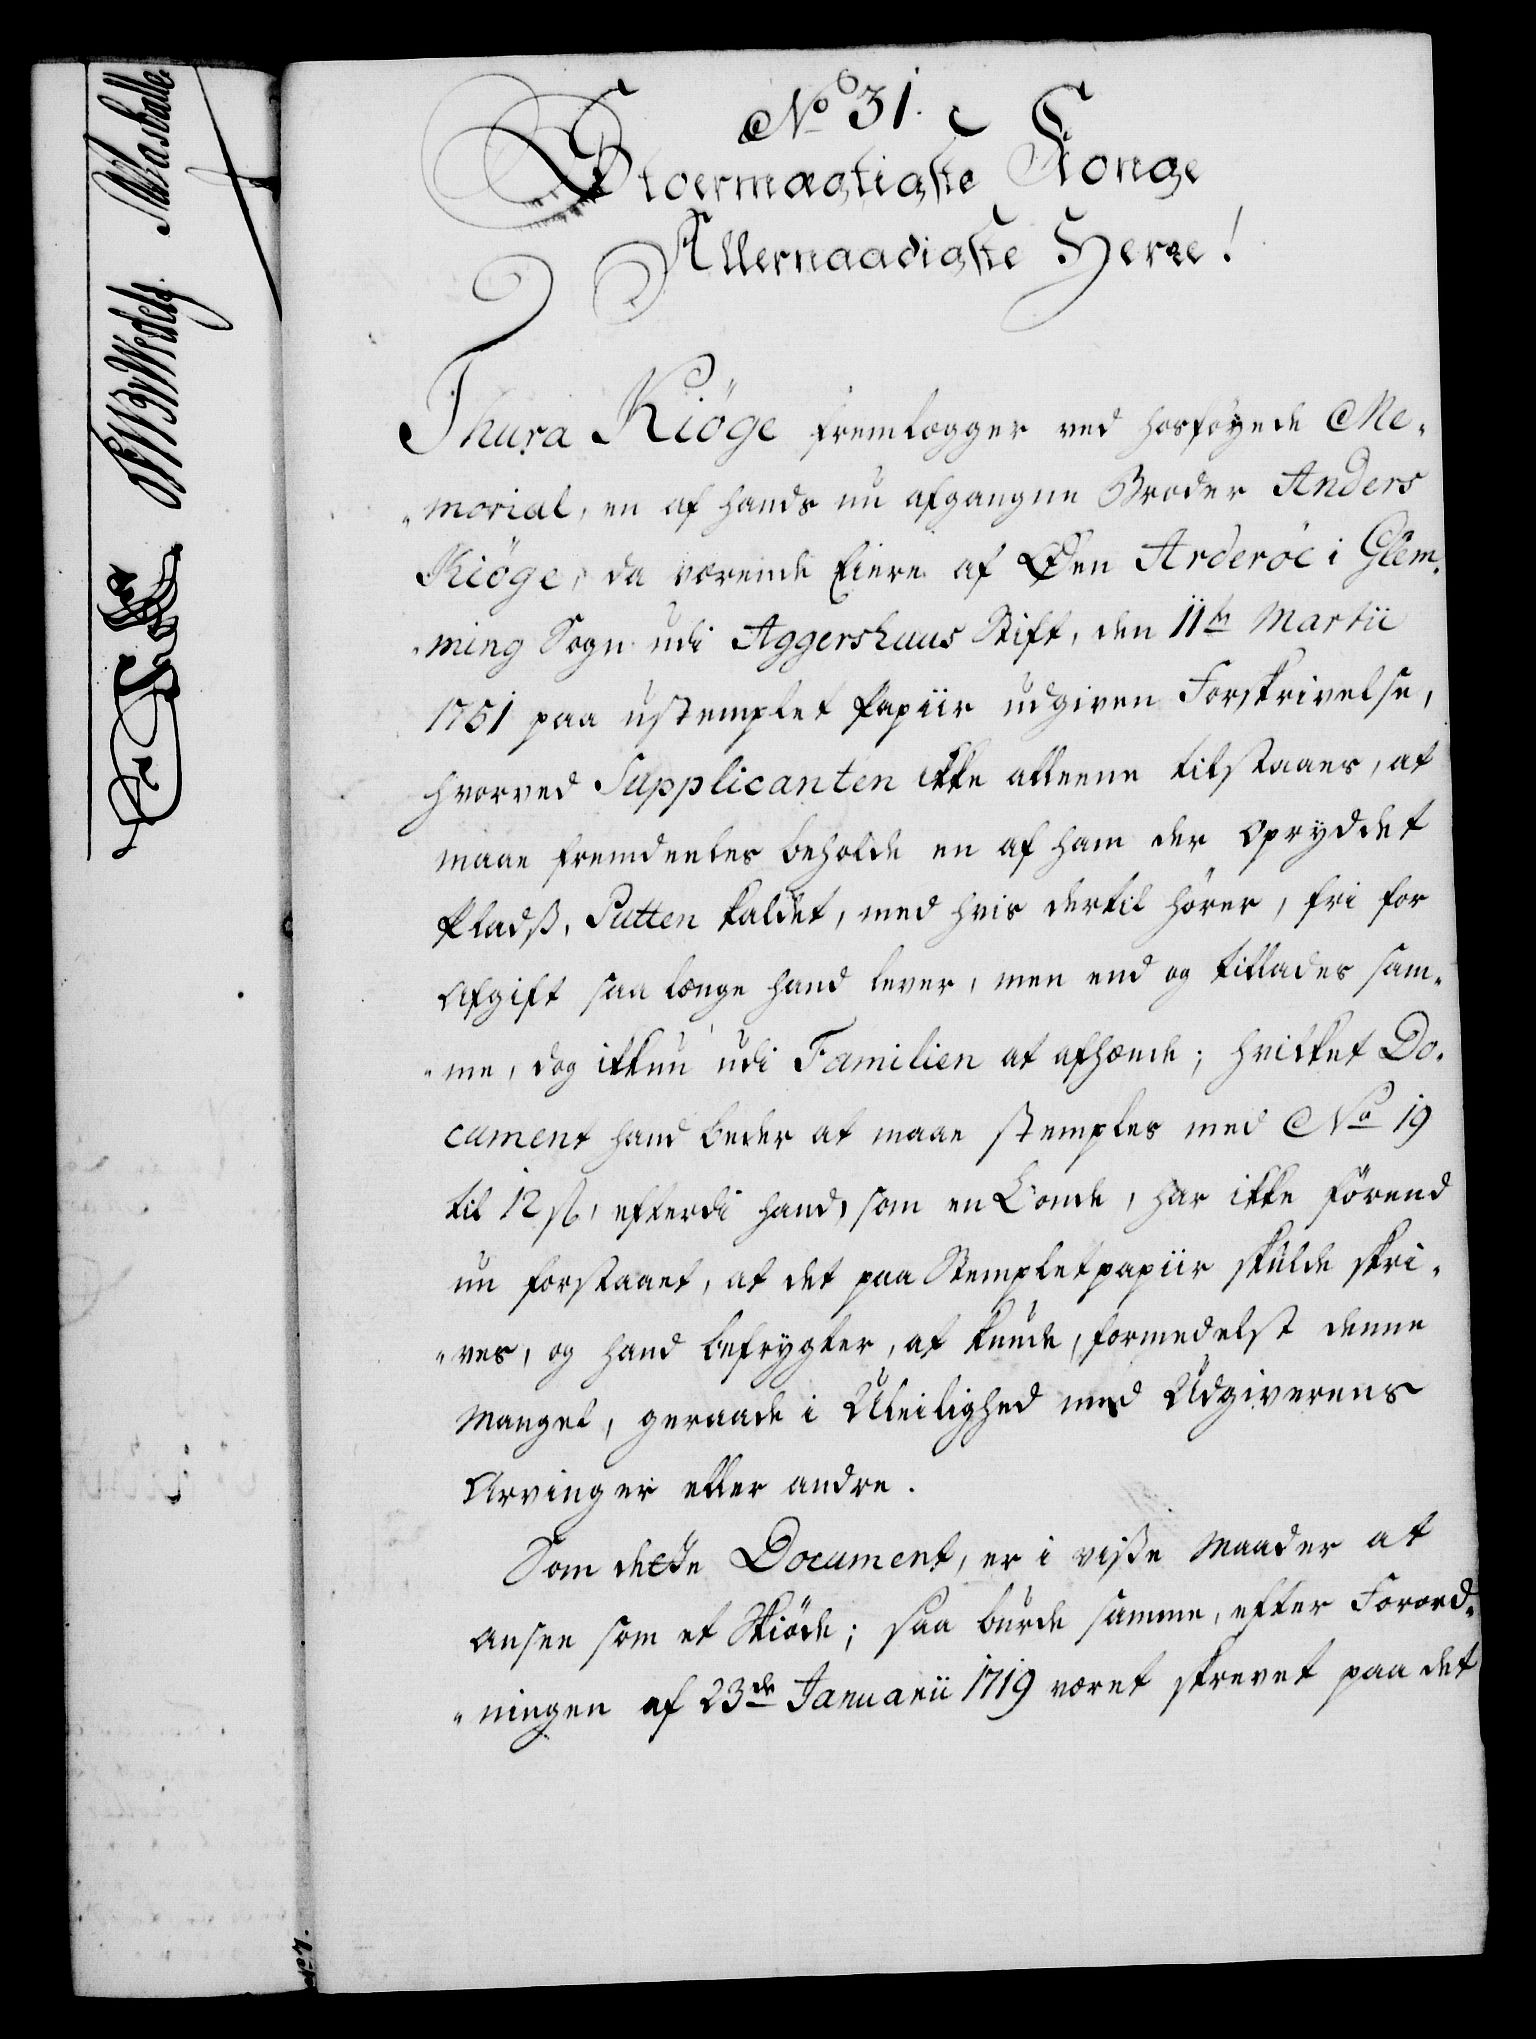 No 31.
Stoermægtigste Konge
Allernaadigste Herre!
Thura Kiöge fremlægger ved hosföyede Me-
morial, en af hands nu afgangne Broder Anders
Kiöge, da værende Eiere af Öen Arderöe i Glem-
ming Sogn udi Aggershuus Stift, den 11te Martii
1751 paa ustemplet Papiir udgiven Forskrivelse,
hvorved Supplicanten ikke alleene tilstaaes, at
maae fremdeeles beholde en af ham der opryddet
Pladß, Putten kaldet, med hvis dertil hörer, fri for
Afgift saa længe hand lever, men end og tillades sam-
me, dog ikkun udi Familien at afhænde; hvilket Do-
cument hand beder at maae stemples med No 19
til 12 ß, efterdi hand, som en Bonde, har ikke förend
nu forstaaet, at det paa Stempletpapiir skulde skri-
ves, og hand befrygter, at kunde, formedelst denne
Mangel, geraade i Uleilighed med Udgiverens
Arvinger eller andre.
Som dette Document, er i visse Maader at
ansee som et Skiöde; saa burde samme, efter Forord-
ningen af 23de Januarii 1719 været skrevet paa det